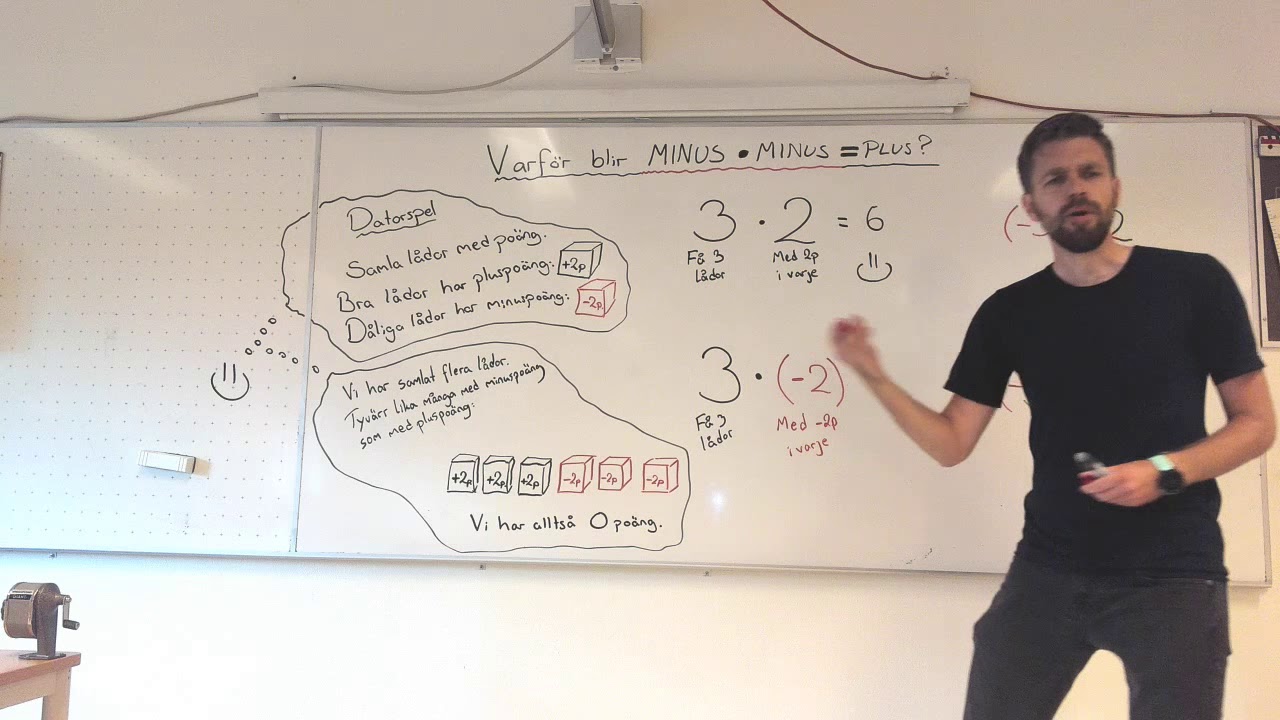 Varför blir MINUS • MINUS = PLUS?
Datorspel
Samla lådor med poäng.
Bra lådor har pluspoäng: +2p
Dåliga lådor har minuspoäng: -2p
Vi har samlat flera lådor.
Tyvärr lika många med minuspoäng
som med pluspoäng:
+2p +2p +2p -2p -2p -2p
Vi har alltså 0 poäng.
3 · 2 = 6
Få 3 Med 2p
lådor i varje
3 · (-2)
Få 3 Med -2p
lådor i varje
(-
2
(-